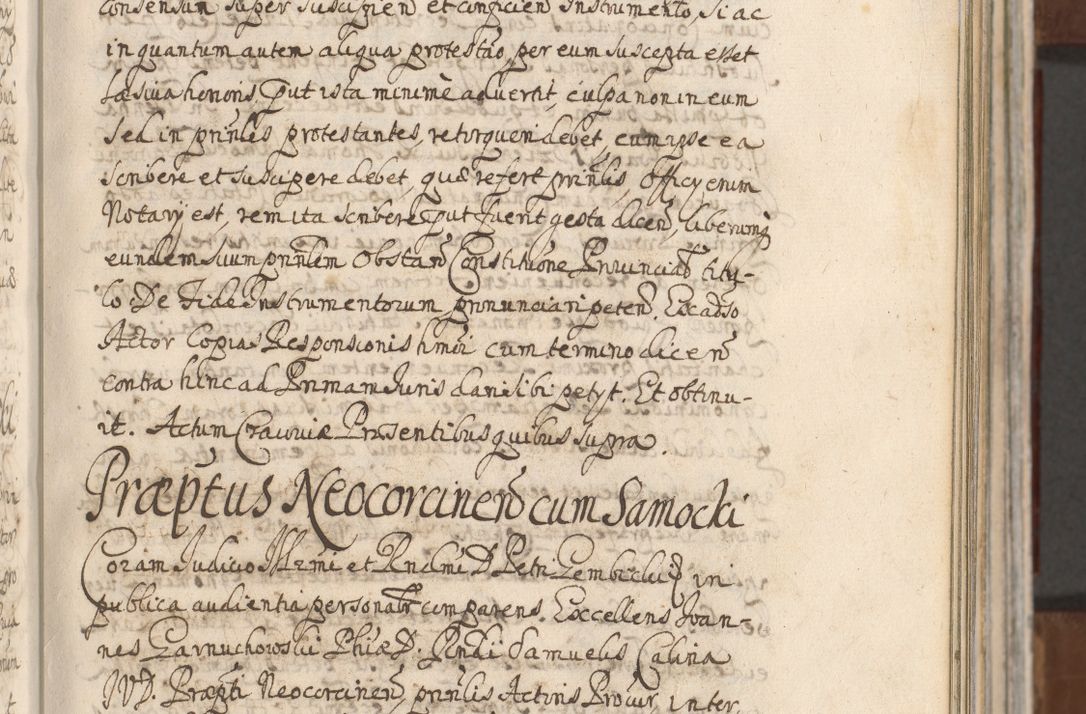 Consensum super suscipien et conficien Instrumento, si ac
in quantum autem aliqua protestao, per eum suscepta esset
Læsiva honoris, put ista minimè advertit, culpa non in eum
sed in prinlis protestantes, retorqueri debet, cum ipse ea
scribere et suscipere debet, quæ refert prinlis, Officy enim
Notary est, rem ita scribere, put fuerit gesta dicen, liberumq
eundem suum prinlem Obstan Constitutione Provinciali titu-
lo De Fide Instrumentorum, pronunciari peten. Ex adso
Actor Copias Responsionis hmoi cum termino dicen
contra hinc ad Primam Juris dari sibi petyt. Et obtinu-
it. Actum Cracoviæ Præsentibus quibus supra.
Præptus Neocorcinen cum Samocki
Coram Judicio Illrmi et Rndmi D. Petri Gembicki in
publica audientia personalr comparens. Excellens Joan-
nes Garnuchowski Phiæ D. Rndi Samuelis Calina
JVD. Præpti Neocorcinen, prinlis Actoris Procur, inter.